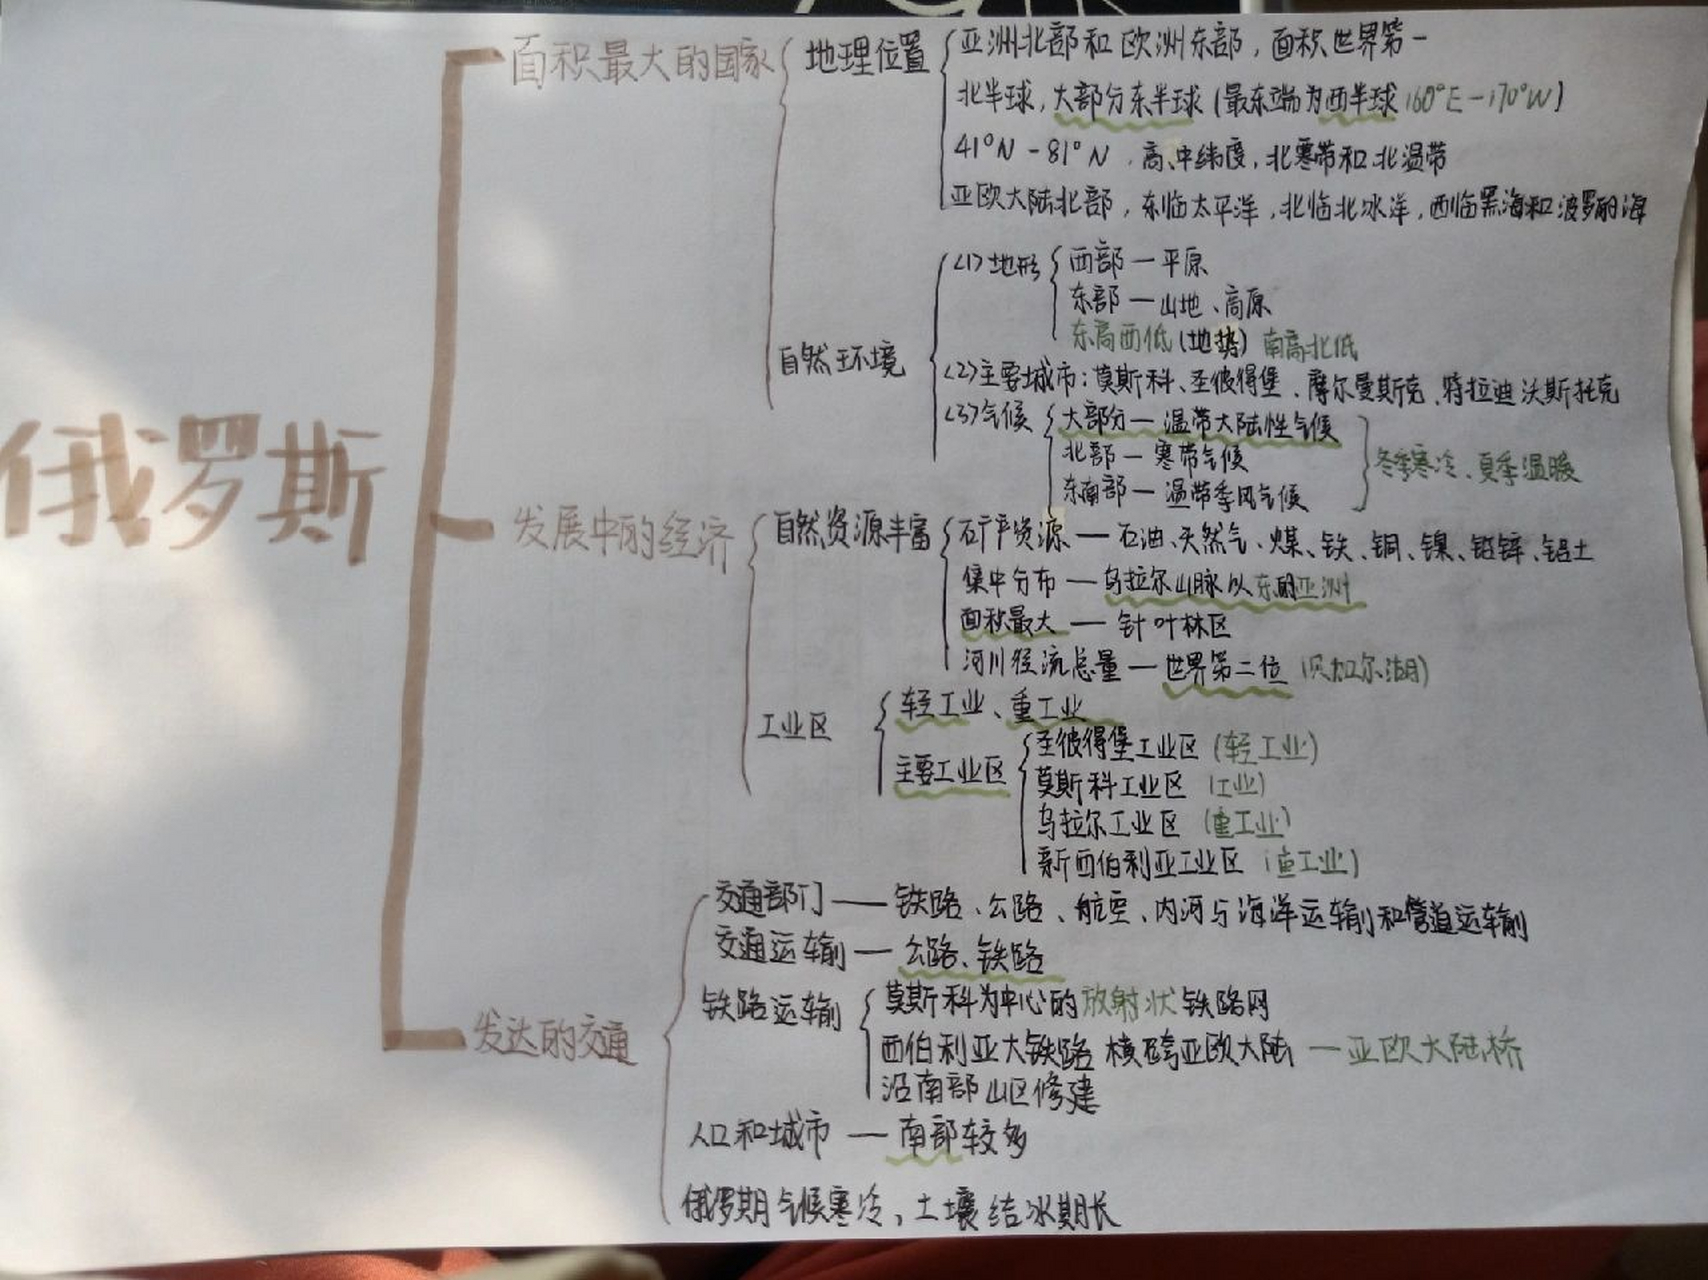 俄罗斯
面积最大的国家
地理位置
亚洲北部和欧洲东部，面积世界第一
北半球，大部分东半球（最东端为西半球 160°E-170°W）
41°N-81°N，高、中纬度，北寒带和北温带
亚欧大陆北部，东临太平洋，北临北冰洋，西临黑海和波罗的海
自然环境
(1)地形
西部—平原
东部—山地、高原
东高西低(地势) 南高北低
(2)主要城市：莫斯科、圣彼得堡、摩尔曼斯克、特拉迪沃斯托克
(3)气候
大部分—温带大陆性气候
北部—寒带气候
东南部—温带季风气候
冬季寒冷、夏季温暖
发展中的经济
自然资源丰富
矿产资源—石油、天然气、煤、铁、铜、镍、铅锌、铝土
集中分布—乌拉尔山脉以东的亚洲
面积最大—针叶林区
河川径流总量—世界第二位（贝加尔湖）
工业区
轻工业、重工业
主要工业区
圣彼得堡工业区（轻工业）
莫斯科工业区（工业）
乌拉尔工业区（重工业）
新西伯利亚工业区（重工业）
发达的交通
交通部门——铁路、公路、航空、内河与海洋运输和管道运输
交通运输—公路、铁路
铁路运输
莫斯科为中心的放射状铁路网
西伯利亚大铁路横跨亚欧大陆—亚欧大陆桥
沿南部山区修建
人口和城市—南部较多
俄罗斯气候寒冷，土壤结冰期长